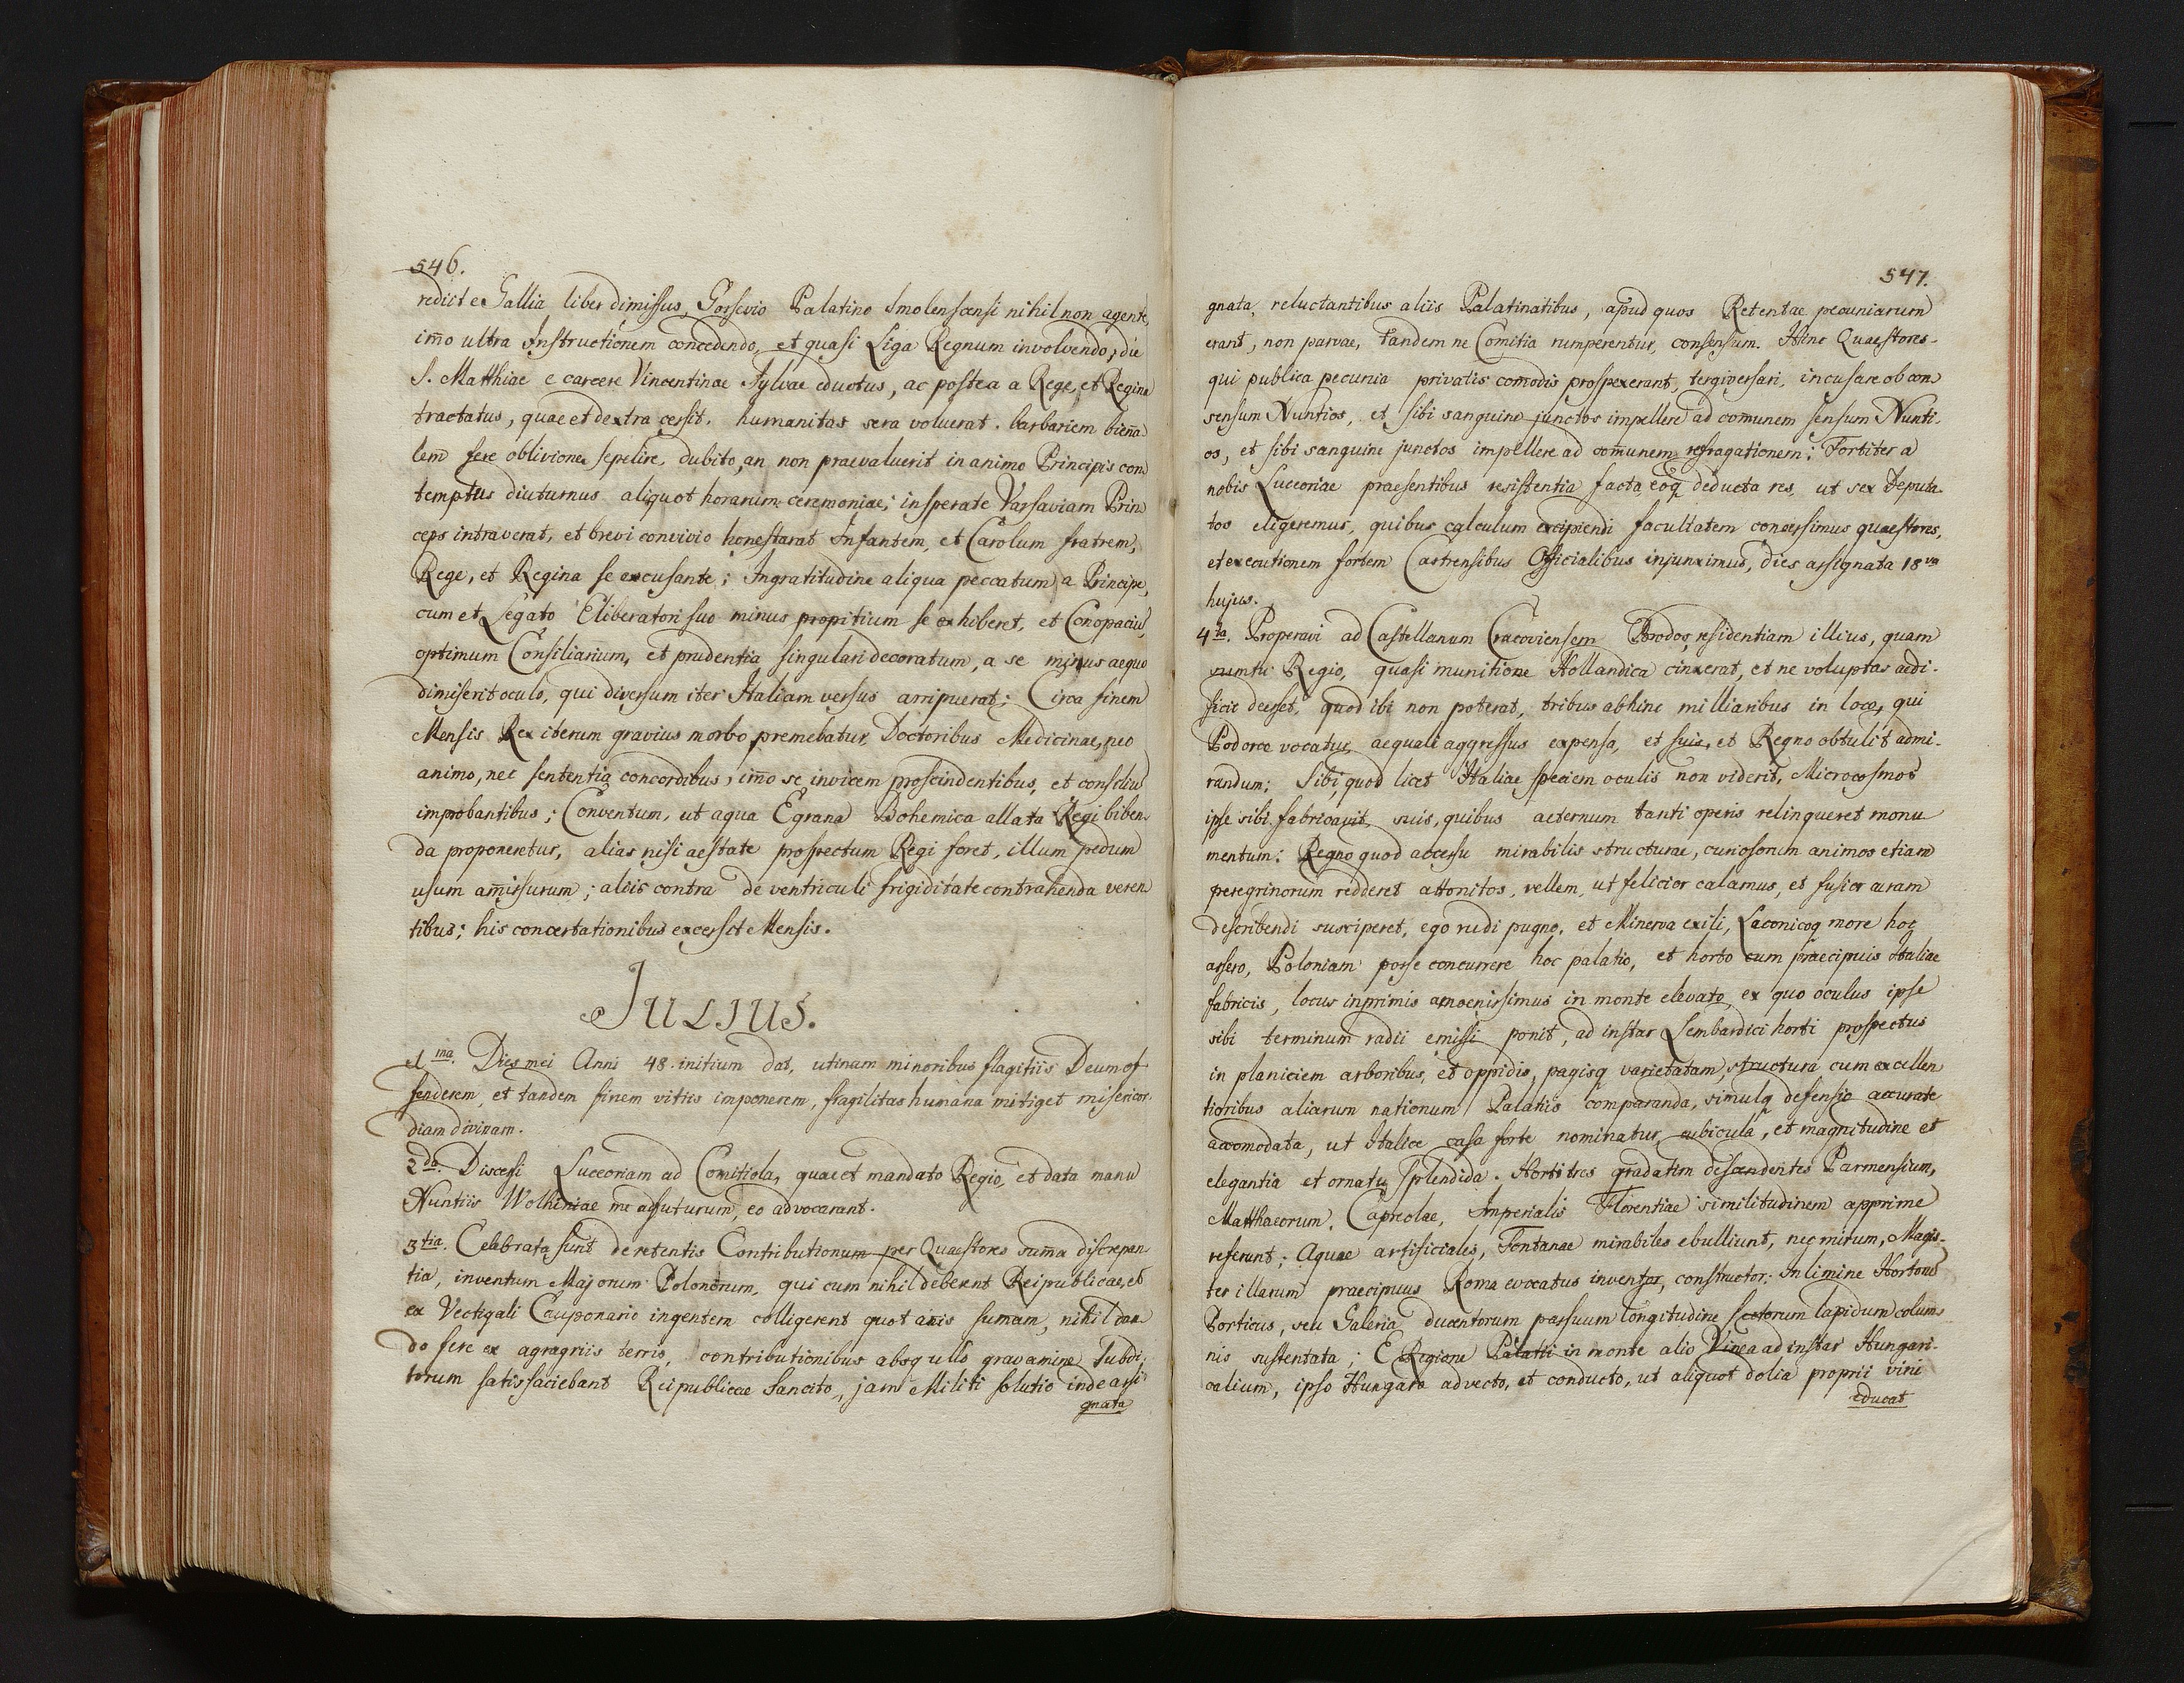 546.
rediit e Gallia liber dimissus, Gorsevio Palatino Smolenscensi nihil non agente,
imo ultra Instructionem concedendo, et quasi Liga Regnum involvendo, die
S. Matthiae e carcere Vincentinae Sylvae eductus, ac postea a Rege, et Regina
tractatus, quae et dextra cersit. humanitas sera voluerat. barbariem biena
lem fere oblivione sepelire, dubito, an non praevaluerit in animo Principis con
temptus diuturnus aliquot horarum ceremoniae; insperate Varsaviam Prin
ceps intraverat, et brevi convivio honestarat Infantem, et Carolum fratrem,
Rege, et Regina se excusante; Ingratitudine aliqua peccatum a Principe,
cum et Legato Eliberatori suo minus propitium se exhiberet, et Conopaciu,
optimum Consiliarium, et prudentia singulari decoratum, a se minus aequo
dimiserit oculo, qui diversum iter Italiam versus arripuerat; Circa finem
Mensis Rex iterum gravius morbo premebatur, Doctoribus Medicinae, nec
animo, nec sententia concordibus, imo se invicem proscindentibus, et consiliu
improbantibus; Conventum, ut aqua Egrana Bohemica allata Regi biben-
da proponeretur, alias nisi aestate prospectum Regi foret, illum pedum
usum amissurum; aliis contra de ventriculi frigiditate contrahenda veren
tibus; his concertationibus excersit Mensis.
JULIUS.
1ma. Dies mei Anni 48. initium dat, utinam minoribus flagitiis Deum of
fenderem, et tandem finem vitiis imponerem, fragilitas humana mitiget misericor
diam divinam.
2da. Discessi Luceoriam ad Comitiola, quae et mandato Regio, et data manu
Nuntiis Wolhiniae me adfuturum, eo advocarant.
3tia. Celebrata sunt de retentis Contributionum per Quaestores suma discrepan
tia, inventum Majorum Polonorum, qui cum nihil deberent Reipublicae, et
ex Vectigali Cauponario ingentem colligerent quot anis sumam, nihil dan
do fere ex agragriis terris, contributionibus absq ullo gravamine Subdi
torum satisfaciebant Reipublicae Sancito, jam Militi solutio inde assi
gnata
547.
gnata, reluctantibus aliis Palatinatibus, apud quos Retentae pecuniarum
erant, non parvae, tandem ne Comitia rumperentur, consensum. Hinc Quaestores
qui publica pecunia privatis comodis prospexerant, tergiversari, incusare ob con
sensum Nuntios, et sibi sanguine junctos impellere ad comunem sensum Nunti-
os, et sibi sanguine junctos impellere ad comunem refragationem: Fortiter a
nobis Luceoriae praesentibus resistentia facta, eoq deducta res, ut sex Deputa-
tos eligeremus, quibus calculum excipiendi facultatem concersimus quaestores,
et executionem fortem Castrensibus Officialibus injunximus, dies assignata 18va
hujus.
4ta. Properavi ad Castellanum Cracoviensem Brodos, residentiam illius, quam
sumtu Regio, quasi munitione Hollandica cinxerat, et ne voluptas aedi-
ficii deesset, quod ibi non poterat, tribus abhinc milliaribus in loco, qui
Podorce vocatur, aequali aggressus expensa, et suis, et Regno obtulit admi-
randum; Sibi, quod licet Italiae speciem oculis non viderit, Microcosmos
ipse sibi fabricavit, suis, quibus aeternum tanti operis relinqueret monu
mentum: Regno quod accessu mirabilis structurae, curiosorum animos etiam
peregrinorum redderet attonitos, vellem, ut felicior calamus, et fusior curam
describendi susciperet, ego rudi pugno, et Minerva exili, Laconicoq more hoc
assero, Poloniam posse concurrere hoc palatio, et horto cum praecipuis Italiae
fabricis, locus inprimis amoenissimus in monte elevato, ex quo oculus ipse
sibi terminum radii emissi ponit, ad instar Lembardici horti prospectus
in planiciem arboribus, et oppidis, pagisq varietatam, structura cum excellen
tioribus aliarum nationum Palatiis comparanda, simulq defensio accurate
accomodata, ut Italice casa forte nominatur, cubicula, et magnitudine et
elegantia et ornatu splendida. Horti tres gradatim descendentes Parmensium,
Matthaeorum, Capreolae, Imperialis Florentiae similitudinem apprime
referunt; Aquae artificiales, Fontanae mirabiles ebulliunt, nec mirum, Magis-
ter illarum praecipuus Roma evocatus inventor, constructor: In limine Hortorum
Porticus, seu Galeria ducentorum passuum longitudine sectorum lapidum colum
nis sustentata; E Regione Palatii in monte alio Vinea ad instar Hungari-
calium, ipso Hungaro advecto, et conducto, ut aliquot dolia proprii vini
educat